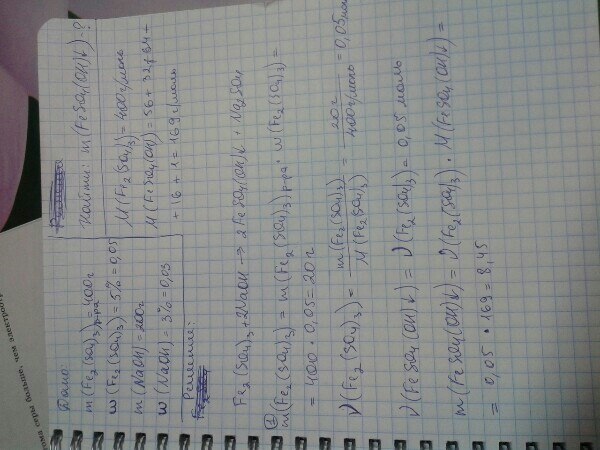 Дано:
m(Fe2(SO4)3)р-ра = 400г
ω(Fe2(SO4)3) = 5% = 0,05
m(NaOH) = 200г
ω(NaOH) = 3% = 0,03
Найти: m(FeSO4(OH)↓) - ?
M(Fe2(SO4)3) = 400г/моль
M(FeSO4(OH)) = 56 + 32 + 64 +
+ 16 + 1 = 169 г/моль
Решение:
Fe2(SO4)3 + 2NaOH → 2FeSO4(OH)↓ + Na2SO4
① m(Fe2(SO4)3) = m(Fe2(SO4)3)р-ра · ω(Fe2(SO4)3) =
= 400 · 0,05 = 20г
ν(Fe2(SO4)3) = m(Fe2(SO4)3) / M(Fe2(SO4)3) = 20г / 400г/моль = 0,05моль
ν(FeSO4(OH)↓) = ν(Fe2(SO4)3) = 0,05 моль
m(FeSO4(OH)↓) = ν(Fe2(SO4)3) · M(FeSO4(OH)↓) =
= 0,05 · 169 = 8,45
ома серы больше, чем электроот